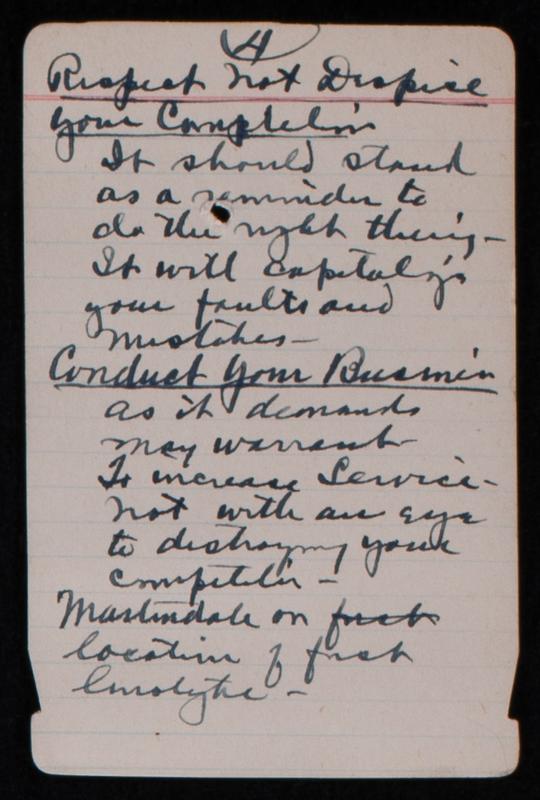 4
Respect not Despise
your Competitor
It should stand
as a reminder to
do the right thing -
It will capitalize
your faults and
mistakes -
Conduct your Business
as it demands
may warrant
To increase Service -
not with an eye
to destroying your
competitor -
Martindale on first
location of first